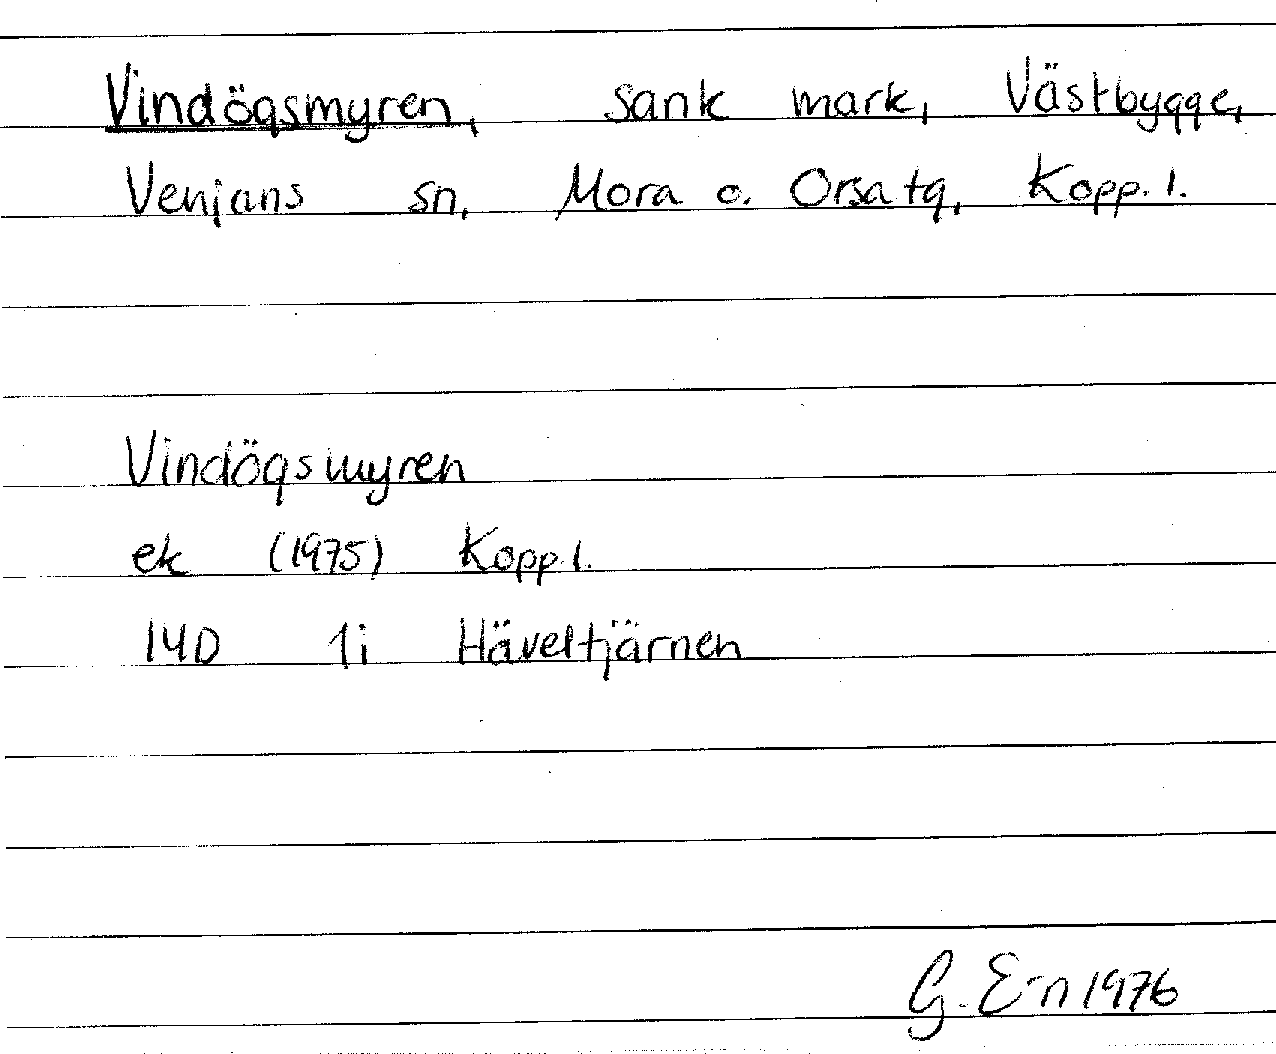 Vindögsmyren, sank mark, Västbygge,
Venjans sn, Mora o. Orsa tg, Kopp. l.
Vindögsmyren
ek (1975) Kopp. l.
14D 1i Häveltjärnen
G. E-n 1976